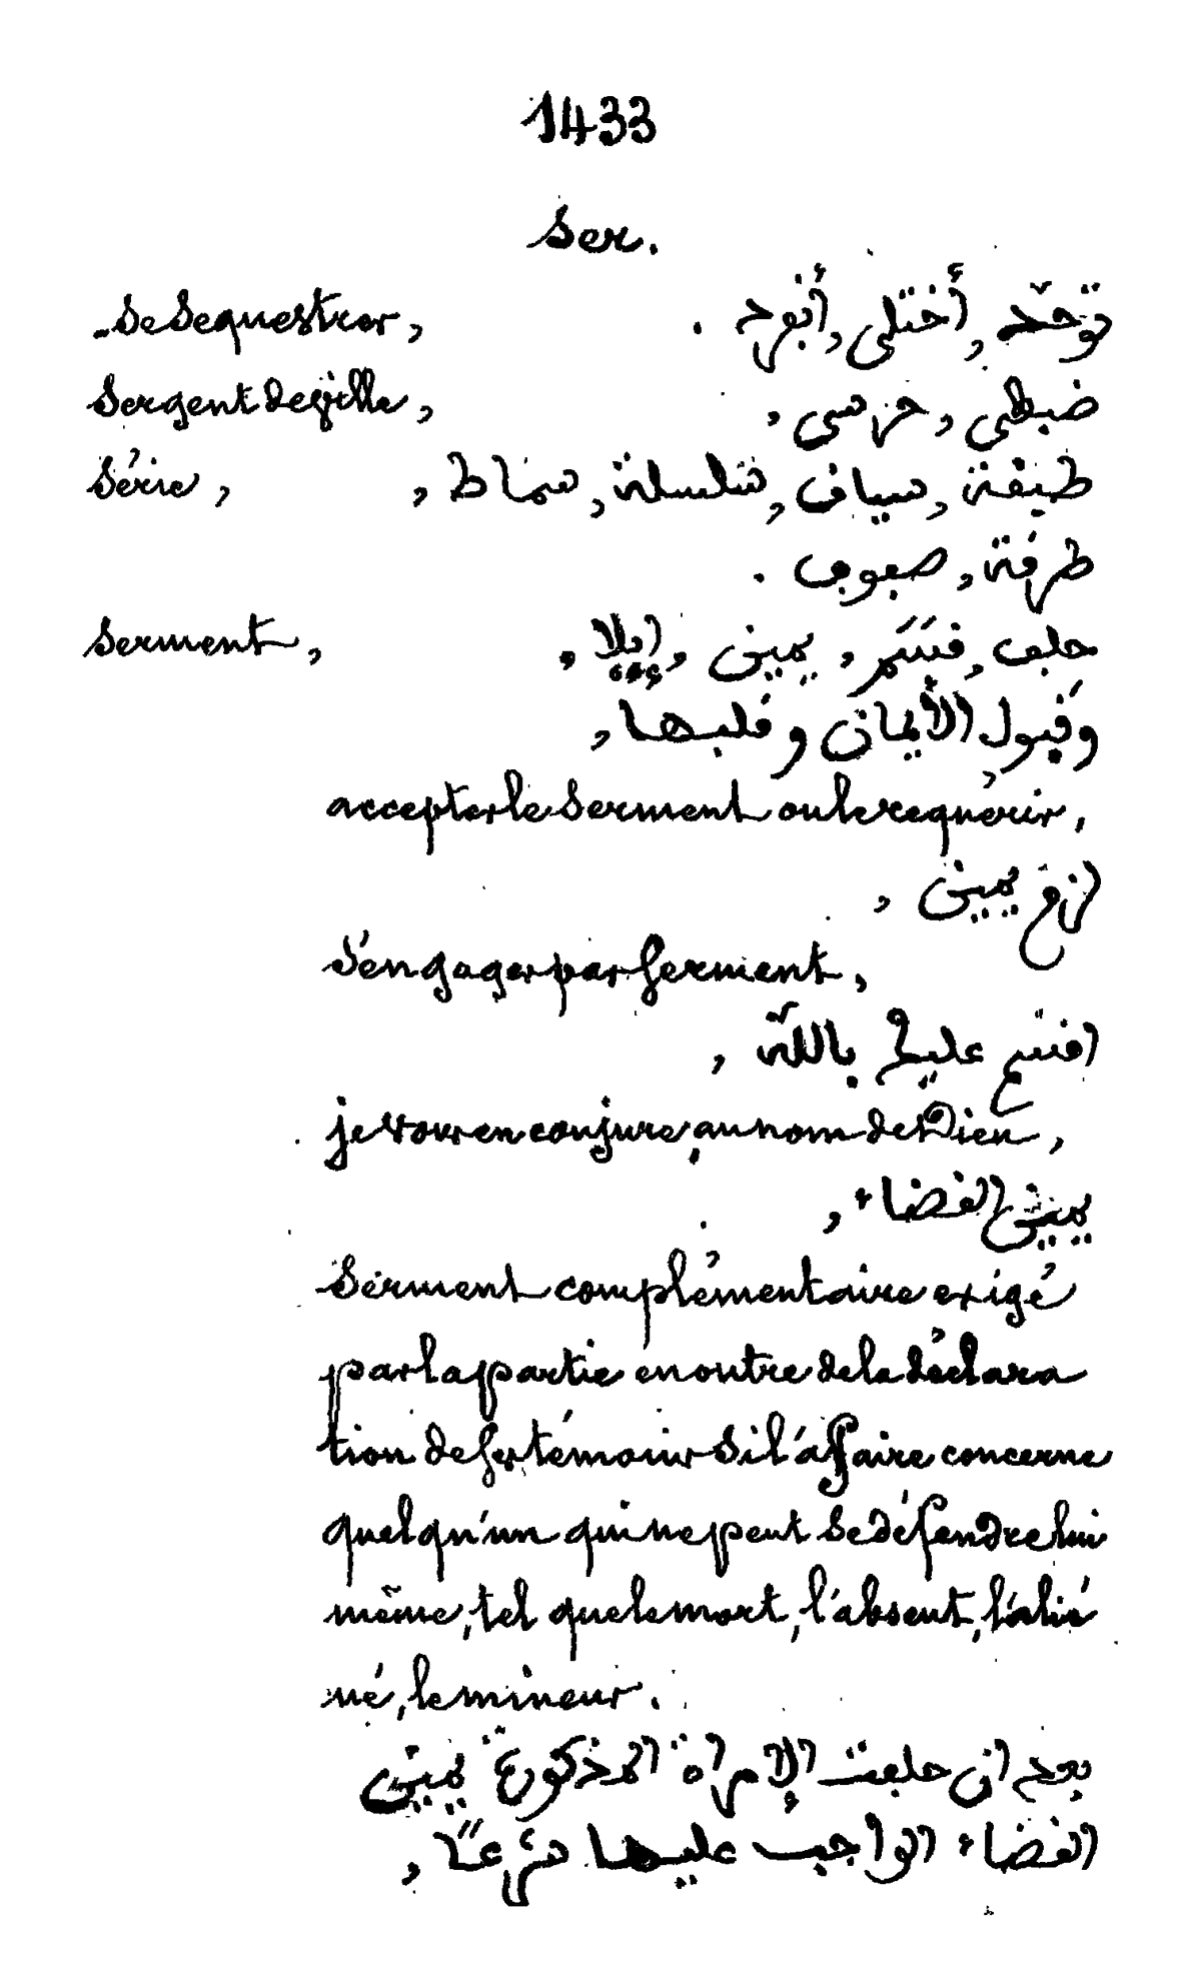 1433
Ser.
Se Sequestrer, توحّد, أختلى, أنفرد.
Sergent de ville, ضبطى, حرسى,
Série, طبقة, سياق, سلسلة, سماط,
طرقة, صفوف.
Serment, حلف, قَسَم, يمين, إيلا,
وقَبول الأيمان وقلبها,
accepter le Serment ou le requérir,
لزم يمين,
S'engager par serment,
اقسم عليكم باللّه,
je vous en conjure, au nom de Dieu,
يمين القضاء,
Serment complémentaire exigé
par la partie en outre de la déclara
tion de ses témoins Si l'affaire concerne
quelqu'un qui ne peut Se défendre lui
même, tel que le mort, l'absent, l'alié
né, le mineur.
بعد ان حلفت الإمراة المذكورة يمين
القضاء الواجب عليها شرعًا,